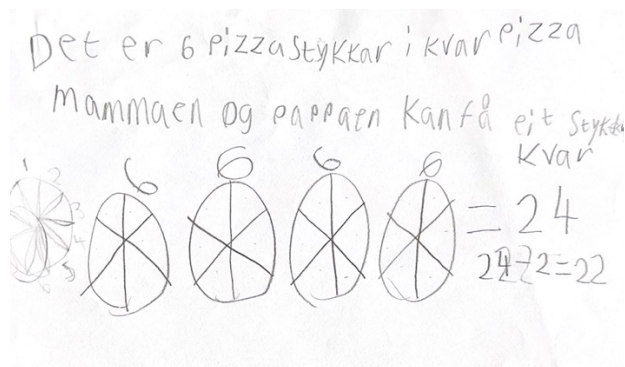 Det er 6 pizzastykkar i kvar pizza
mammaen og pappaen kan få eit stykke
kvar
6 6 6 6
1 2
3
4
5
= 24
24-2=22